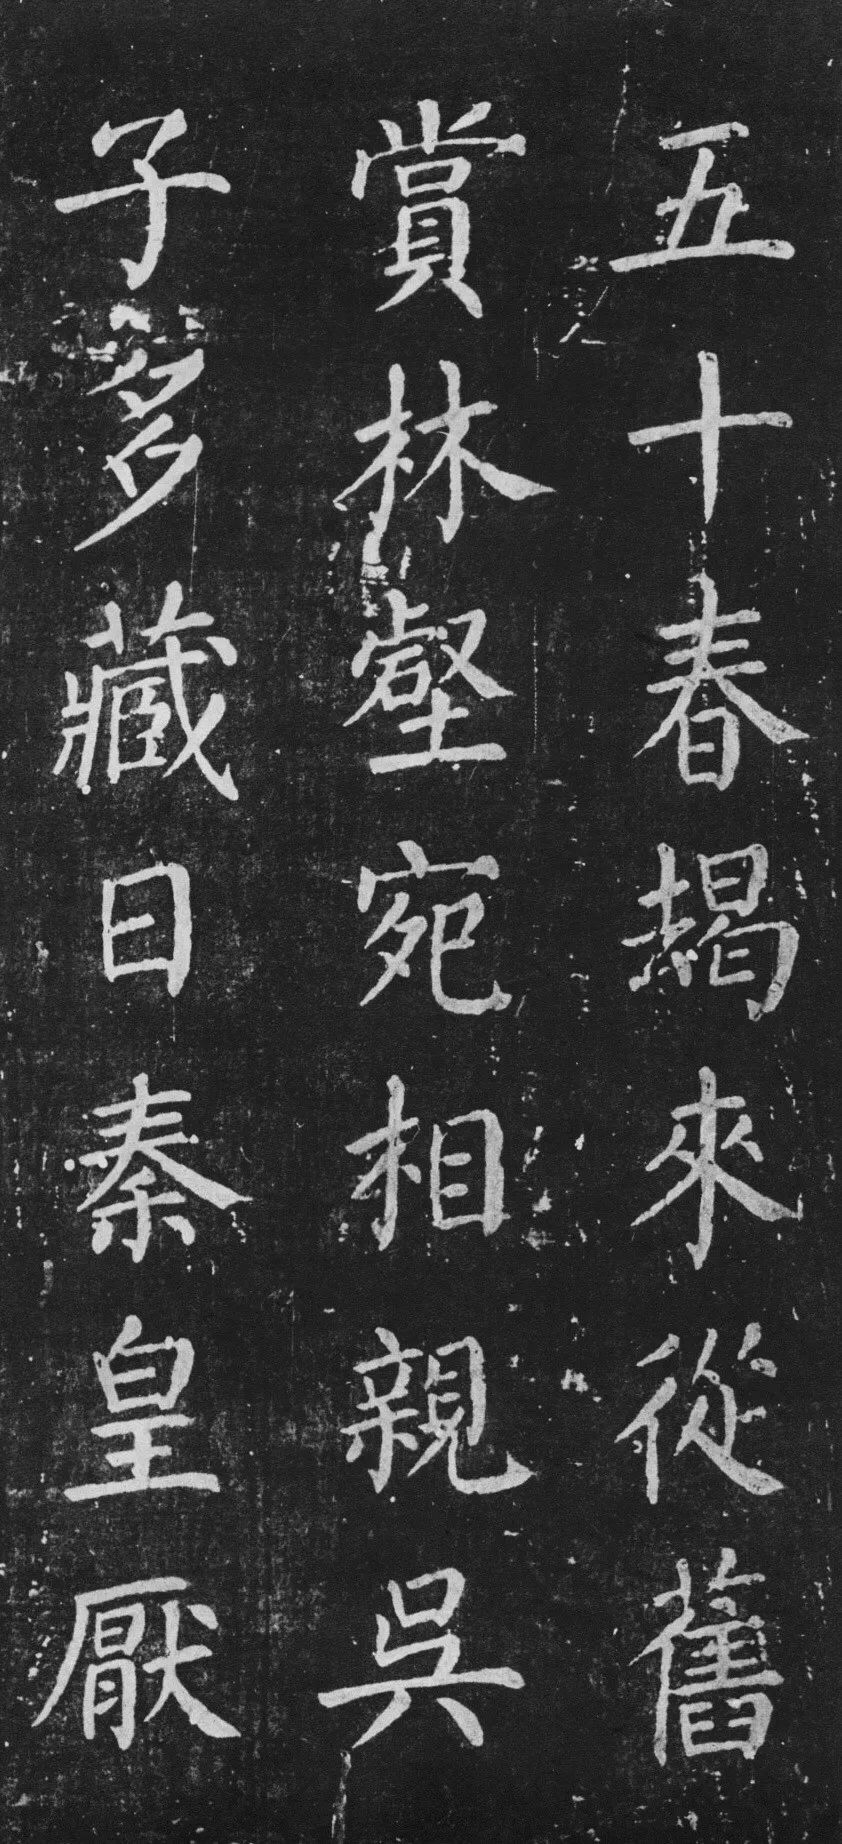 五十春朅來從舊
賞林壑宛相親吳
子多藏日秦皇厭